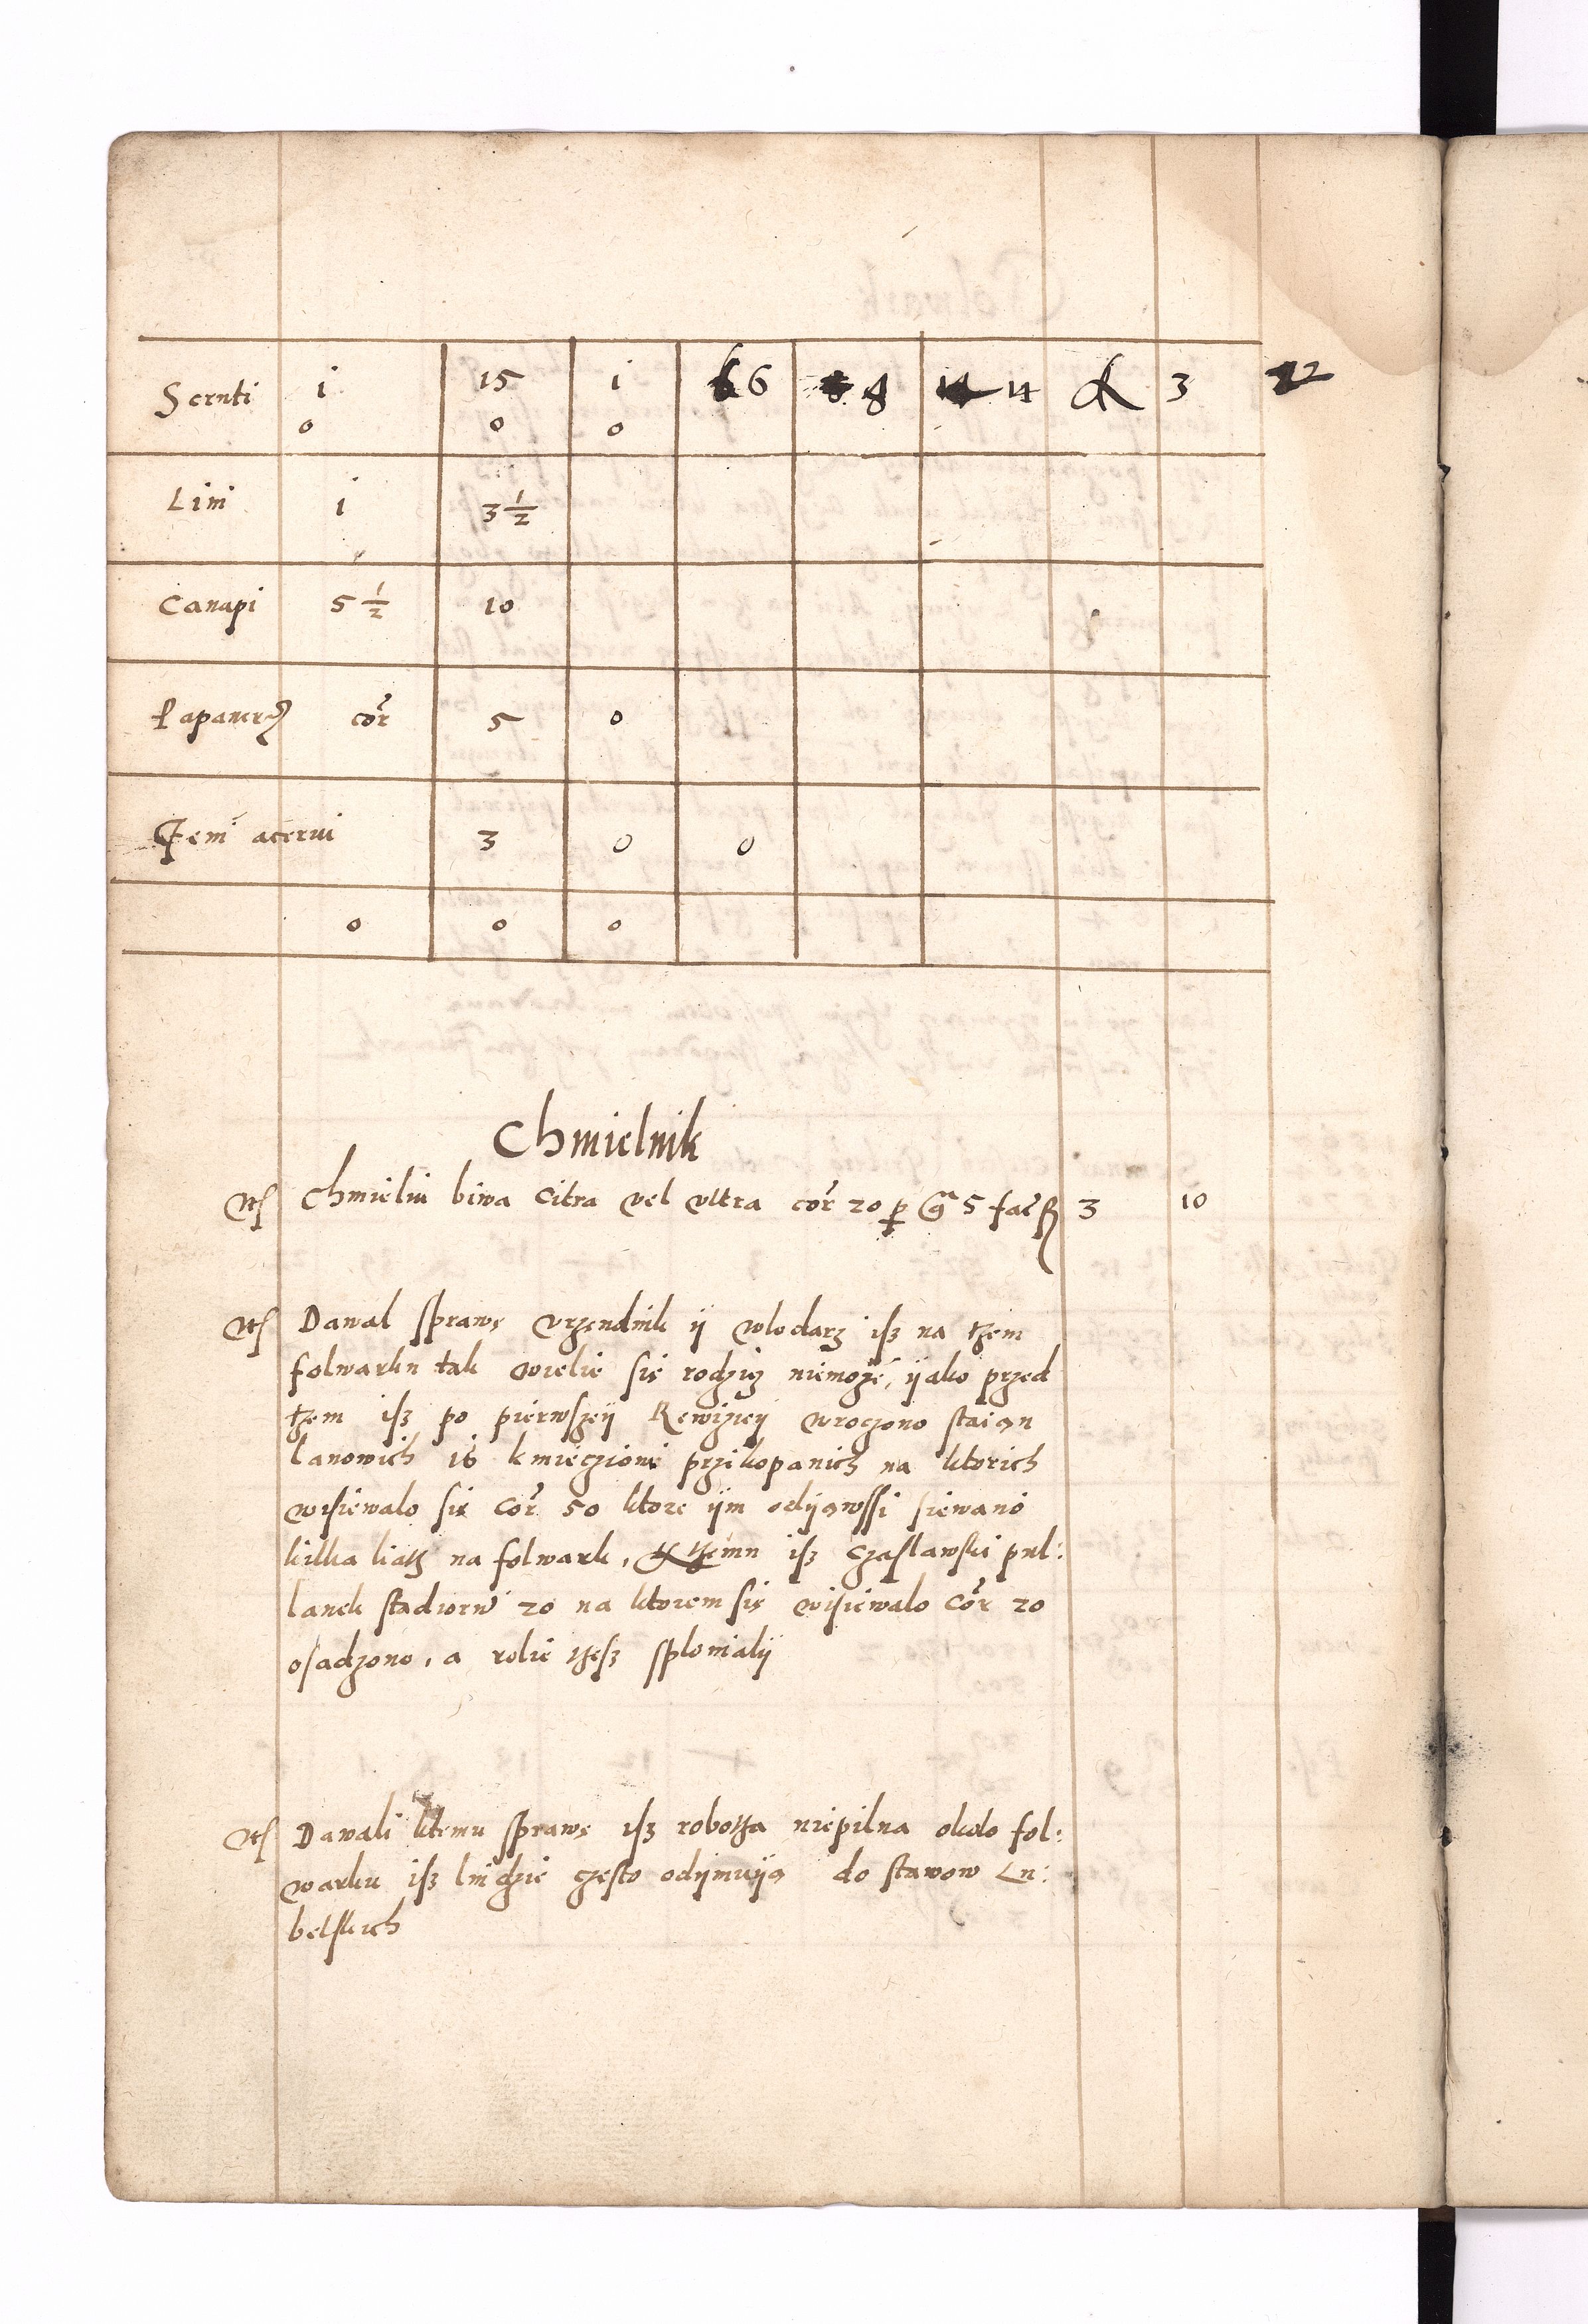 Sernti i 15 i 6 8 11 3 12
0 0 0
Lini i 3 1/2
Canapi 5 1/2 10
Papaueris cor 5 0
Item acerui 3 0 0
0 0 0
Chmielnik
Chmieliu biwa citra vel vltra cor 20 per g 5 fac 3 10
Dawal sprawę vrzendnik ij wlodarz isz na tzem
folwarku tak wielie się rodzicz niemoże, ijako przed
tzem isz po pierwszeij Rewizyeij wroczono staian
lanowich 16 kmieczione przikopanich na ktorich
wisiewalo się cor 50 ktore ijm odijąwssi siewano
kilka liatz na folwark, K temu isz Czaslawski pul:
lanek stadiorum 20 na ktorem się wisiewalo cor 20
osadzono, a rolie tzesz splonialij
Dawali ktemu sprawę isz robotza niepilna okolo fol:
warku isz liudzie często odijmuiją do stawow Lu:
belskich